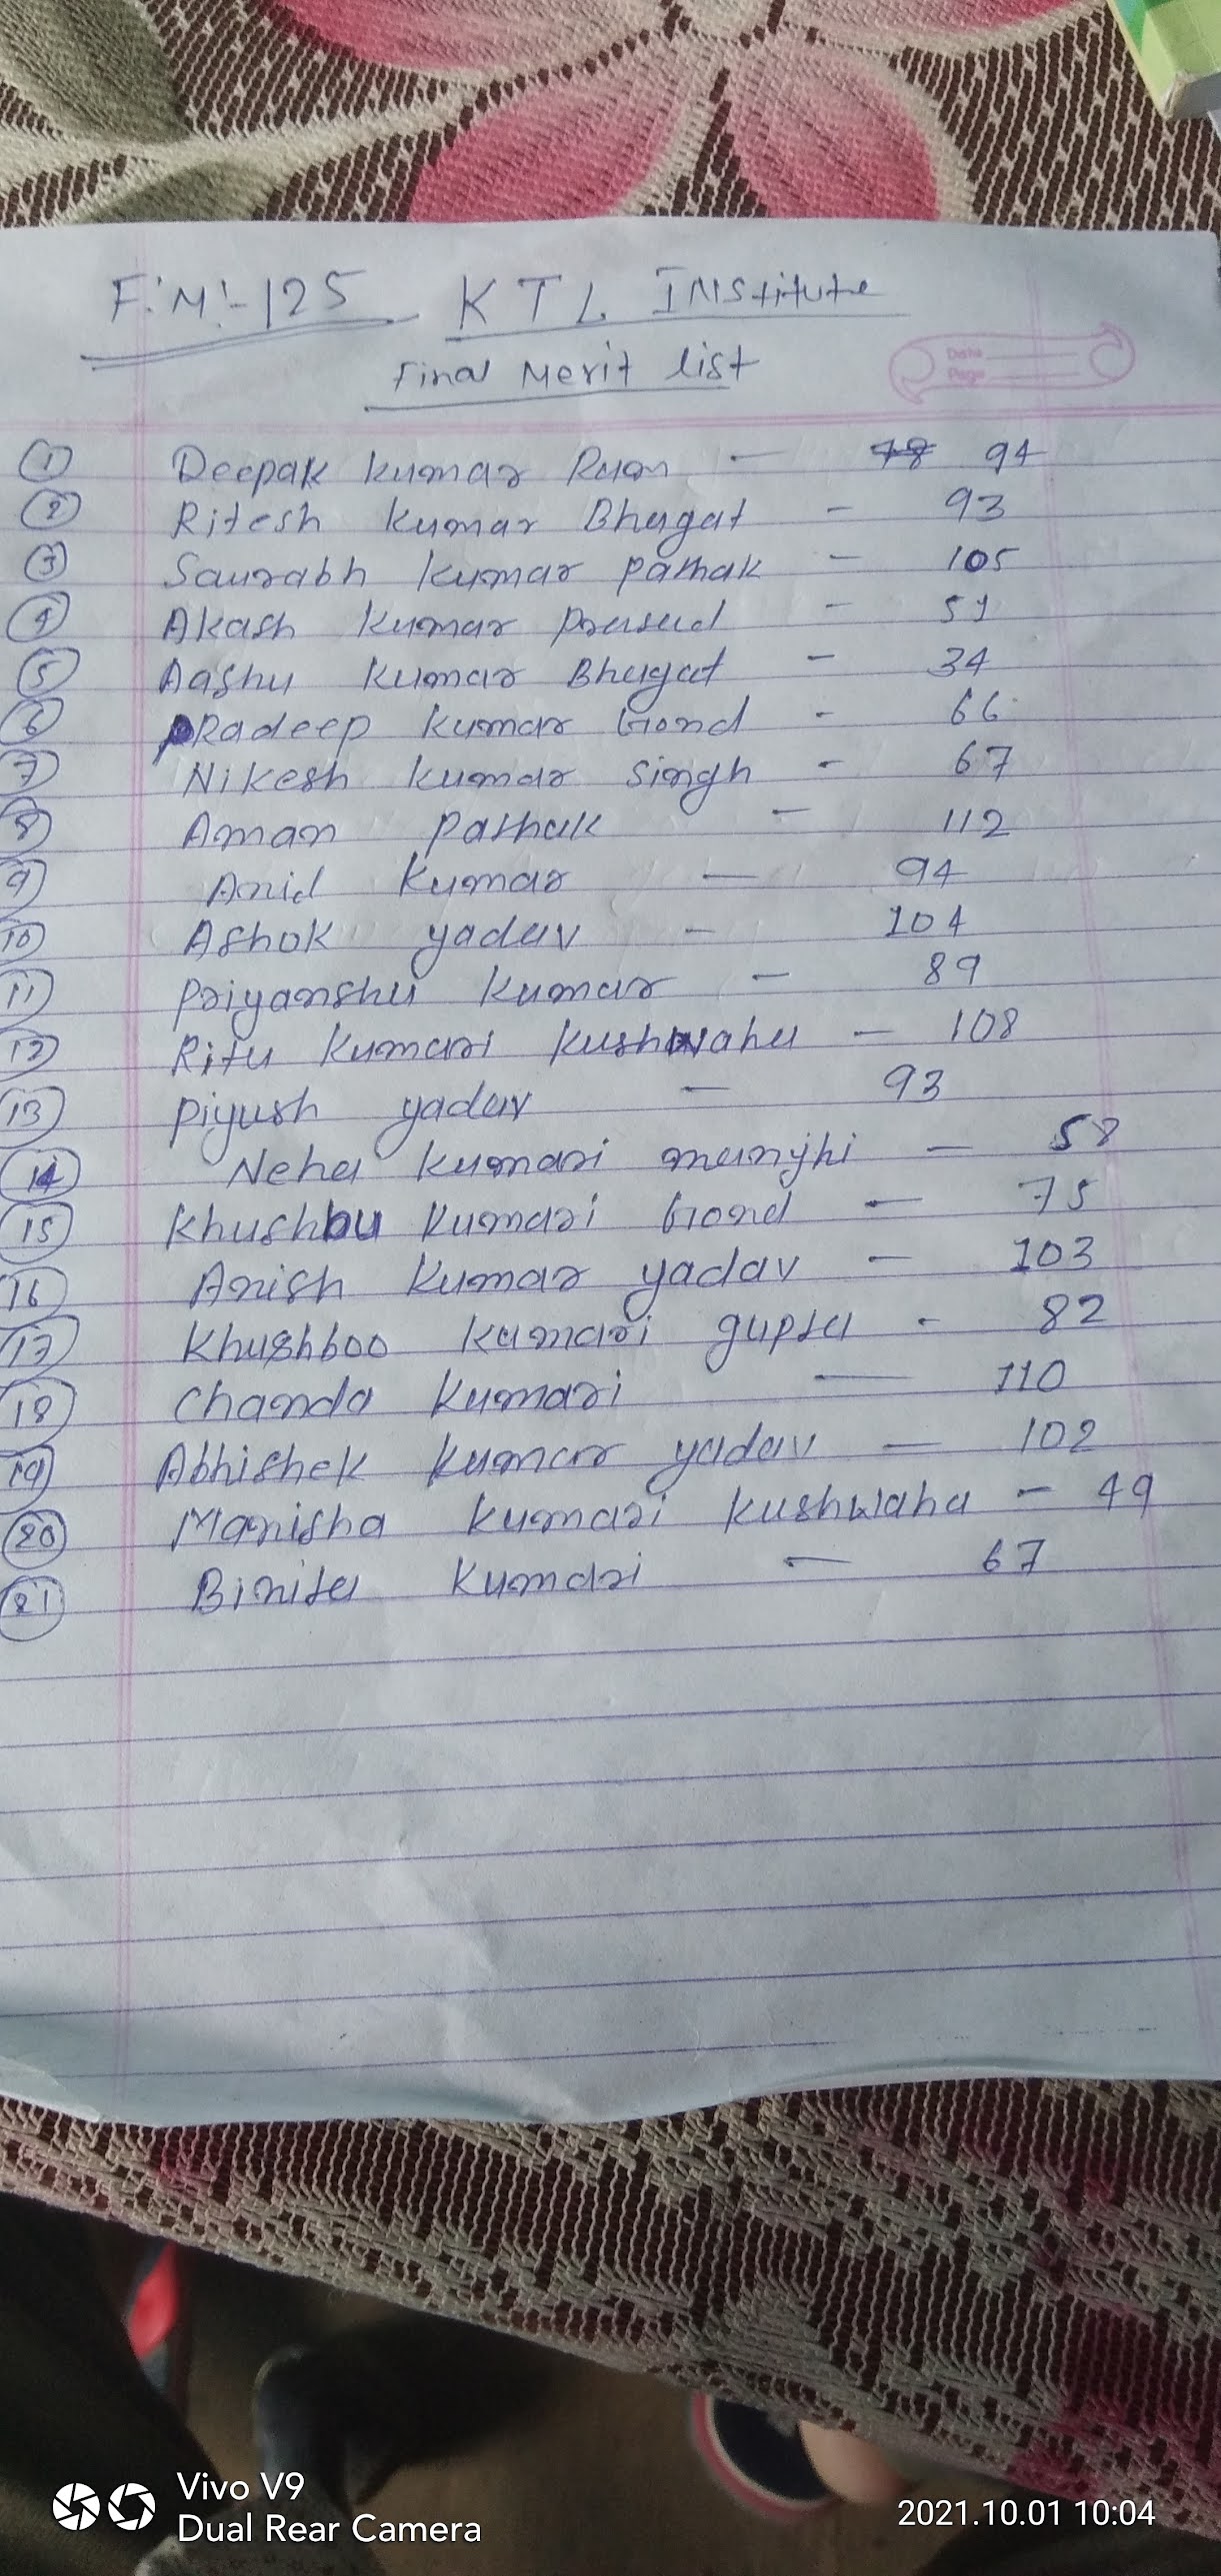 F.M!-125 KTL INStitute
Final Merit list
Date
Page
① Deepak Kumar Ram — 94
② Ritesh Kumar Bhagat - 93
③ Saurabh Kumar Pathak - 105
④ Akash Kumar Prasad - 51
⑤ Aashu Kumar Bhagat - 34
⑥ PRadeep Kumar Gond - 66
⑦ Nikesh Kumar Singh - 67
⑧ Aman Pathak - 112
⑨ Kumar — 94
⑩ Ashok yadav - 104
⑪ Priyanshu Kumar - 89
⑫ Ritu Kumari Kushwaha - 108
⑬ Piyush yadav - 93
⑭ Neha Kumari manjhi - 58
⑮ Khushbu Kumari Gond - 75
⑯ Anish Kumar yadav - 103
⑰ Khushboo Kumari gupta - 82
⑱ Chanda Kumari — 110
⑲ Abhishek Kumar yadav — 102
⑳ Manisha Kumari Kushwaha - 49
㉑ Binita Kumari — 67
Vivo V9
Dual Rear Camera
2021.10.01 10:04